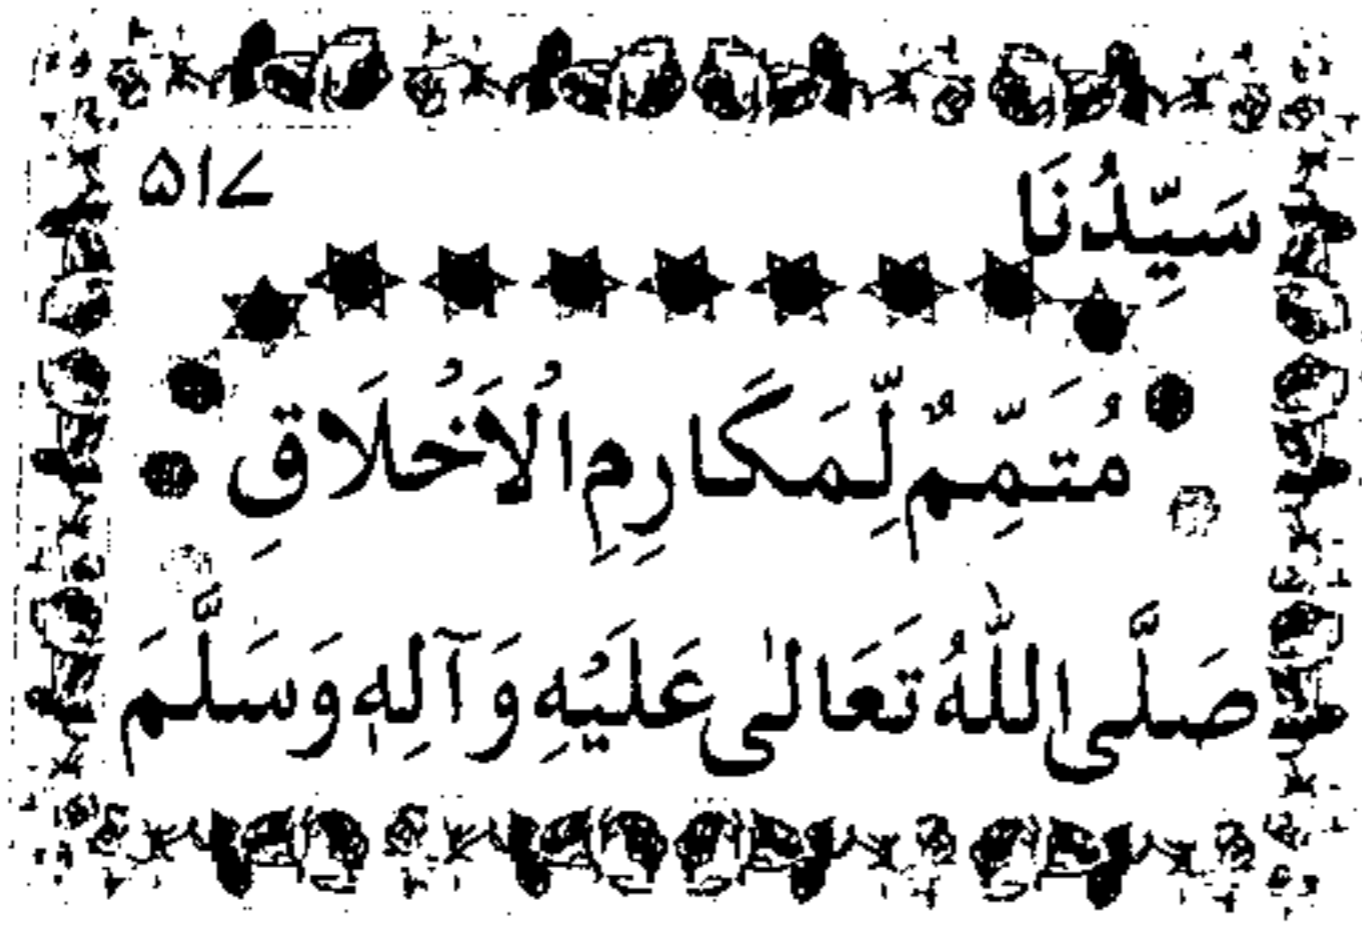 سَيِّدُنَا ۵۱۷
مُتَمِّمٌ لِّمَكَارِمِ الْاَخْلَاقِ
صَلَّى اللّٰهُ تَعَالٰى عَلَيْهِ وَآلِهٖ وَسَلَّمَ